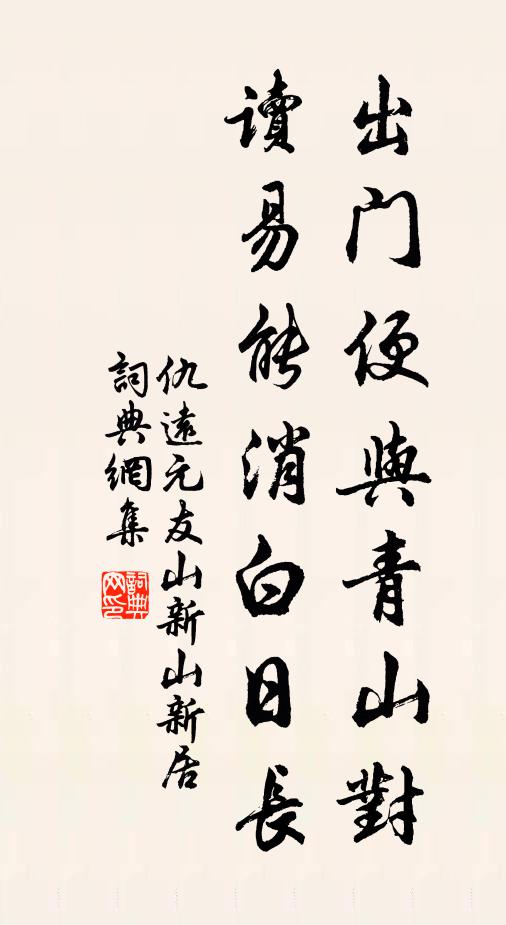 出門便與青山對
讀易能消白日長
仇遠元友山新山新居
詞典網集
詞典网印